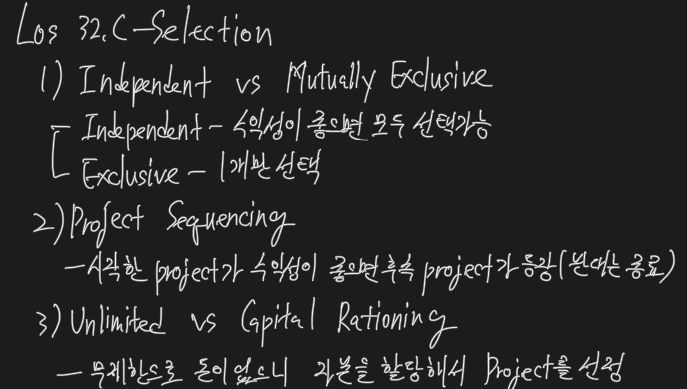 Los 32.C-Selection
1) Independent vs Mutually Exclusive
Independent - 수익성이 좋으면 모두 선택가능
Exclusive - 1개만 선택
2) Project Sequencing
- 시작한 project가 수익성이 좋으면 후속 project가 등장 (반대는 종료)
3) Unlimited vs Capital Rationing
- 무제한으로 돈이 없으니 자본을 할당해서 Project를 선정